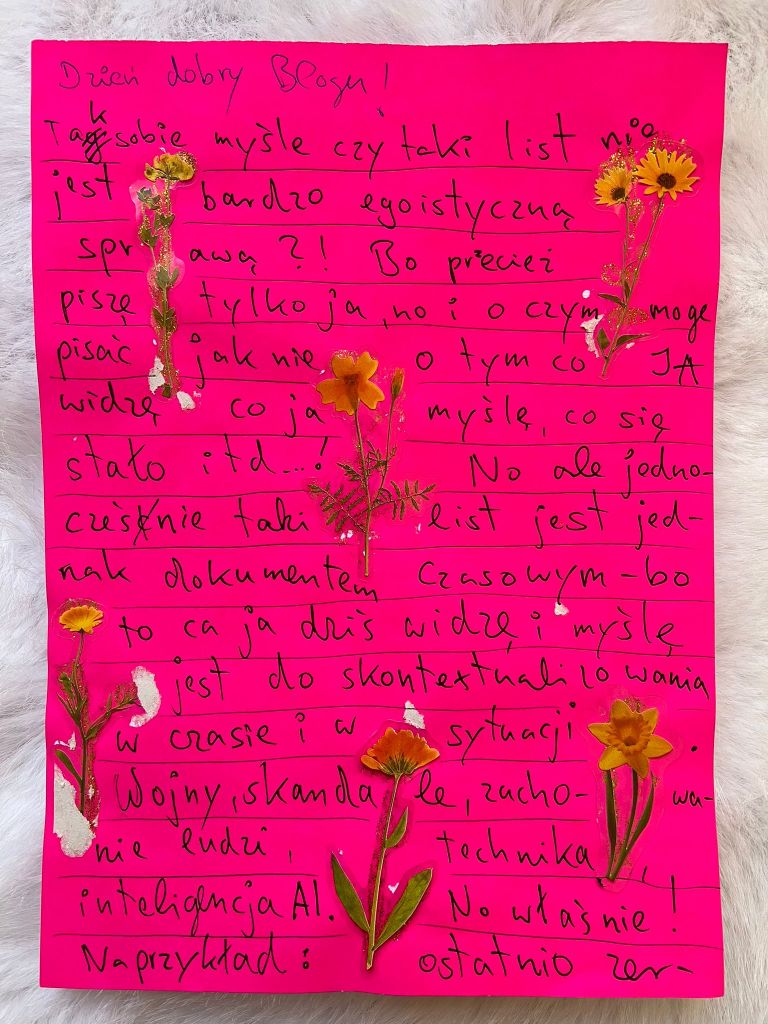 Dzień dobry Blogu!
Tak sobie myśle czy taki list nie
jest bardzo egoistyczną
sprawą?! Bo przecież
piszę tylko ja, no i o czym moge
pisać jak nie o tym co JA
widzę co ja myślę, co się
stało itd...! No ale jedno-
cześnie taki list jest jed-
nak dokumentem czasowym - bo
to ca ja dziś widzę i myślę
jest do skontextualizowania
w czasie i w sytuacji.
Wojny, skandale, zachowa-
nie ludzi, technika,
inteligencja AI. No właśnie!
Naprzykład: ostatnio zer-